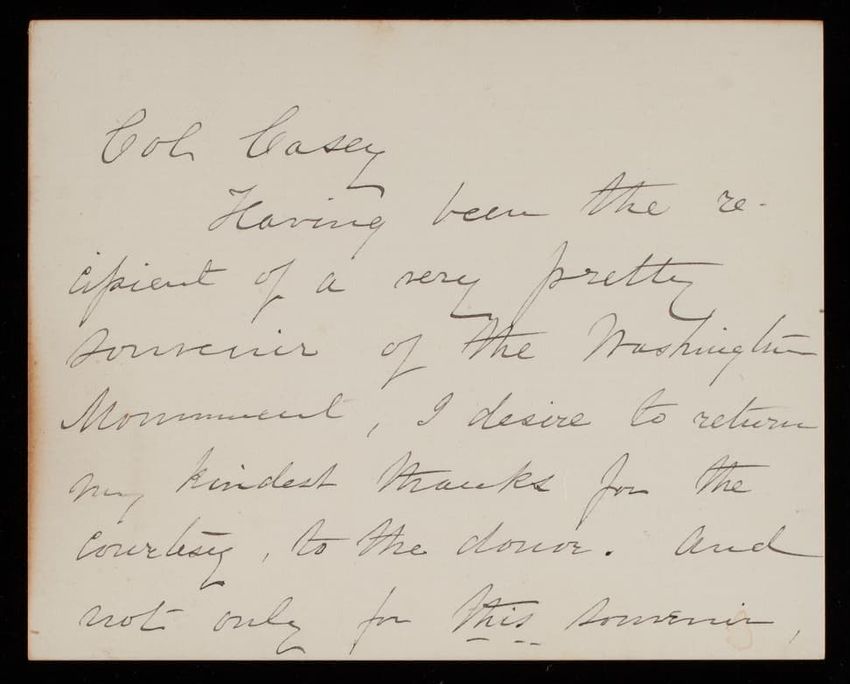 Col Casey
Having been the re-
cipient of a very pretty
souvenir of the Washington
Monument, I desire to return
my kindest thanks for the
courtesy, to the donor. And
not only for this souvenir,